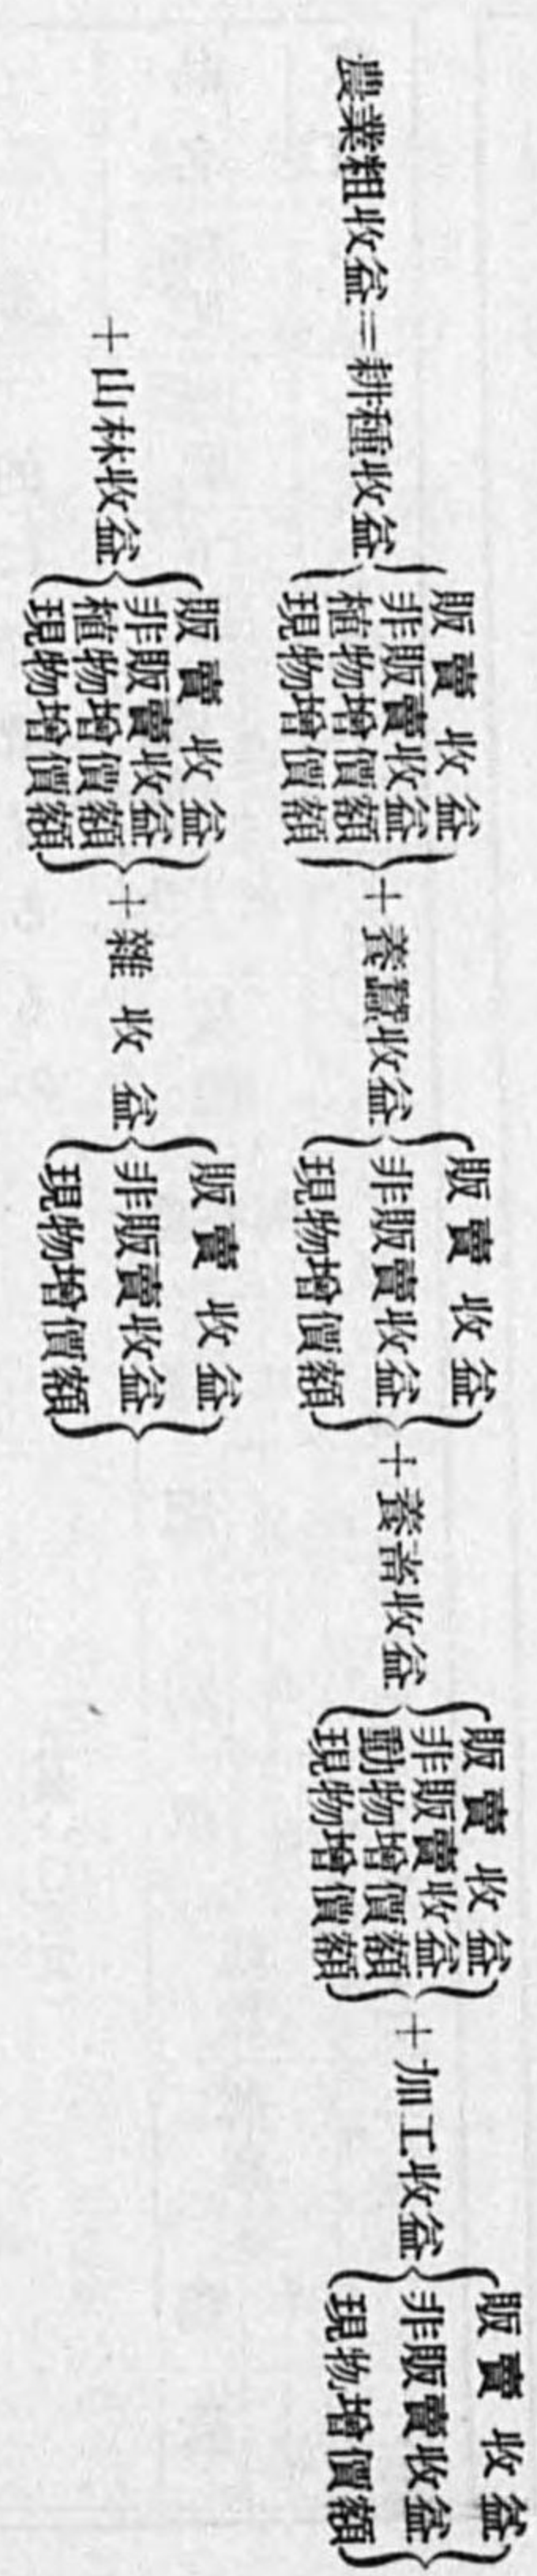 農業粗收益＝耕種收益{販賣收益 非販賣收益 植物增價額 現物增價額}＋養蠶收益{販賣收益 非販賣收益 現物增價額}＋養畜收益{販賣收益 非販賣收益 動物增價額 現物增價額}＋加工收益{販賣收益 非販賣收益 現物增價額}
＋山林收益{販賣收益 非販賣收益 植物增價額 現物增價額}＋雜收益{販賣收益 非販賣收益 現物增價額}